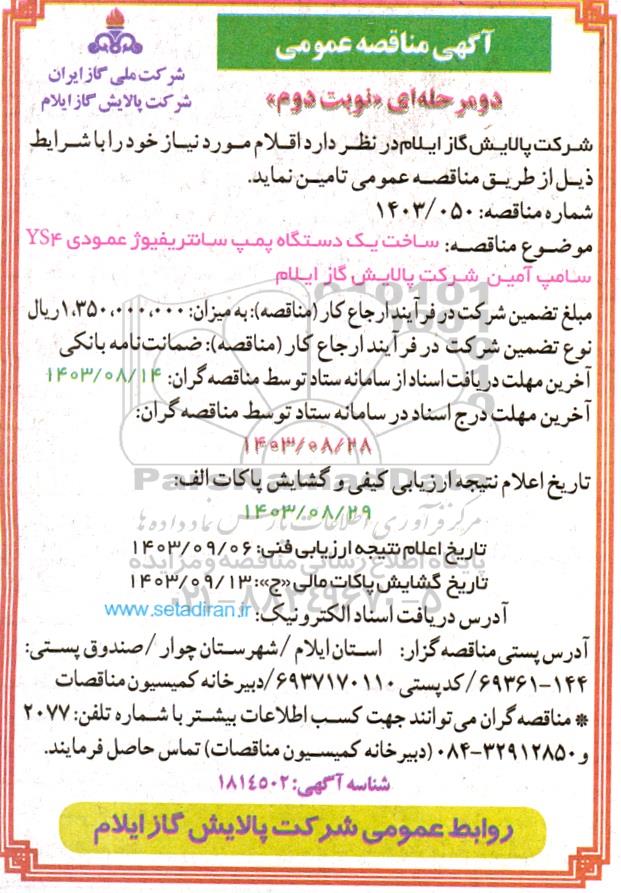 آگهی مناقصه عمومی
شرکت ملی گاز ایران
شرکت پالایش گاز ایلام
دو مرحله‌ای «نوبت دوم»
شرکت پالایش گاز ایلام در نظر دارد اقلام مورد نیاز خود را با شرایط
ذیل از طریق مناقصه عمومی تامین نماید.
شماره مناقصه: ۱۴۰۳/۰۵۰
موضوع مناقصه: ساخت یک دستگاه پمپ سانتریفیوژ عمودی YS۴
سامپ آمین شرکت پالایش گاز ایلام
مبلغ تضمین شرکت در فرآیند ارجاع کار (مناقصه): به میزان: ۱،۳۵۰،۰۰۰،۰۰۰ ریال
نوع تضمین شرکت در فرآیند ارجاع کار (مناقصه): ضمانت‌نامه بانکی
آخرین مهلت دریافت اسناد از سامانه ستاد توسط مناقصه گران: ۱۴۰۳/۰۸/۱۴
آخرین مهلت درج اسناد در سامانه ستاد توسط مناقصه گران:
۱۴۰۳/۰۸/۲۸
ParsNamadData
تاریخ اعلام نتیجه ارزیابی کیفی و گشایش پاکات الف:
۱۴۰۳/۰۸/۲۹
مرکز فرآوری اطلاعات پارس نماد داده ها
تاریخ اعلام نتیجه ارزیابی فنی: ۱۴۰۳/۰۹/۰۶
پایگاه اطلاع رسانی مناقصه و مزایده
تاریخ گشایش پاکات مالی «ج»: ۱۴۰۳/۰۹/۱۳
۰۲۱-۸۸۳۴۹۶۷۰-۵
آدرس دریافت اسناد الکترونیک: www.setadiran.ir
آدرس پستی مناقصه گزار: استان ایلام / شهرستان چوار / صندوق پستی:
۶۹۳۶۱-۱۴۴ / کدپستی ۶۹۳۷۱۷۰۱۱۰ / دبیرخانه کمیسیون مناقصات
* مناقصه گران می‌توانند جهت کسب اطلاعات بیشتر با شماره تلفن: ۲۰۷۷
و ۰۸۴-۳۲۹۱۲۸۵۰ (دبیرخانه کمیسیون مناقصات) تماس حاصل فرمایند.
شناسه آگهی: ۱۸۱۴۵۰۲
روابط عمومی شرکت پالایش گاز ایلام